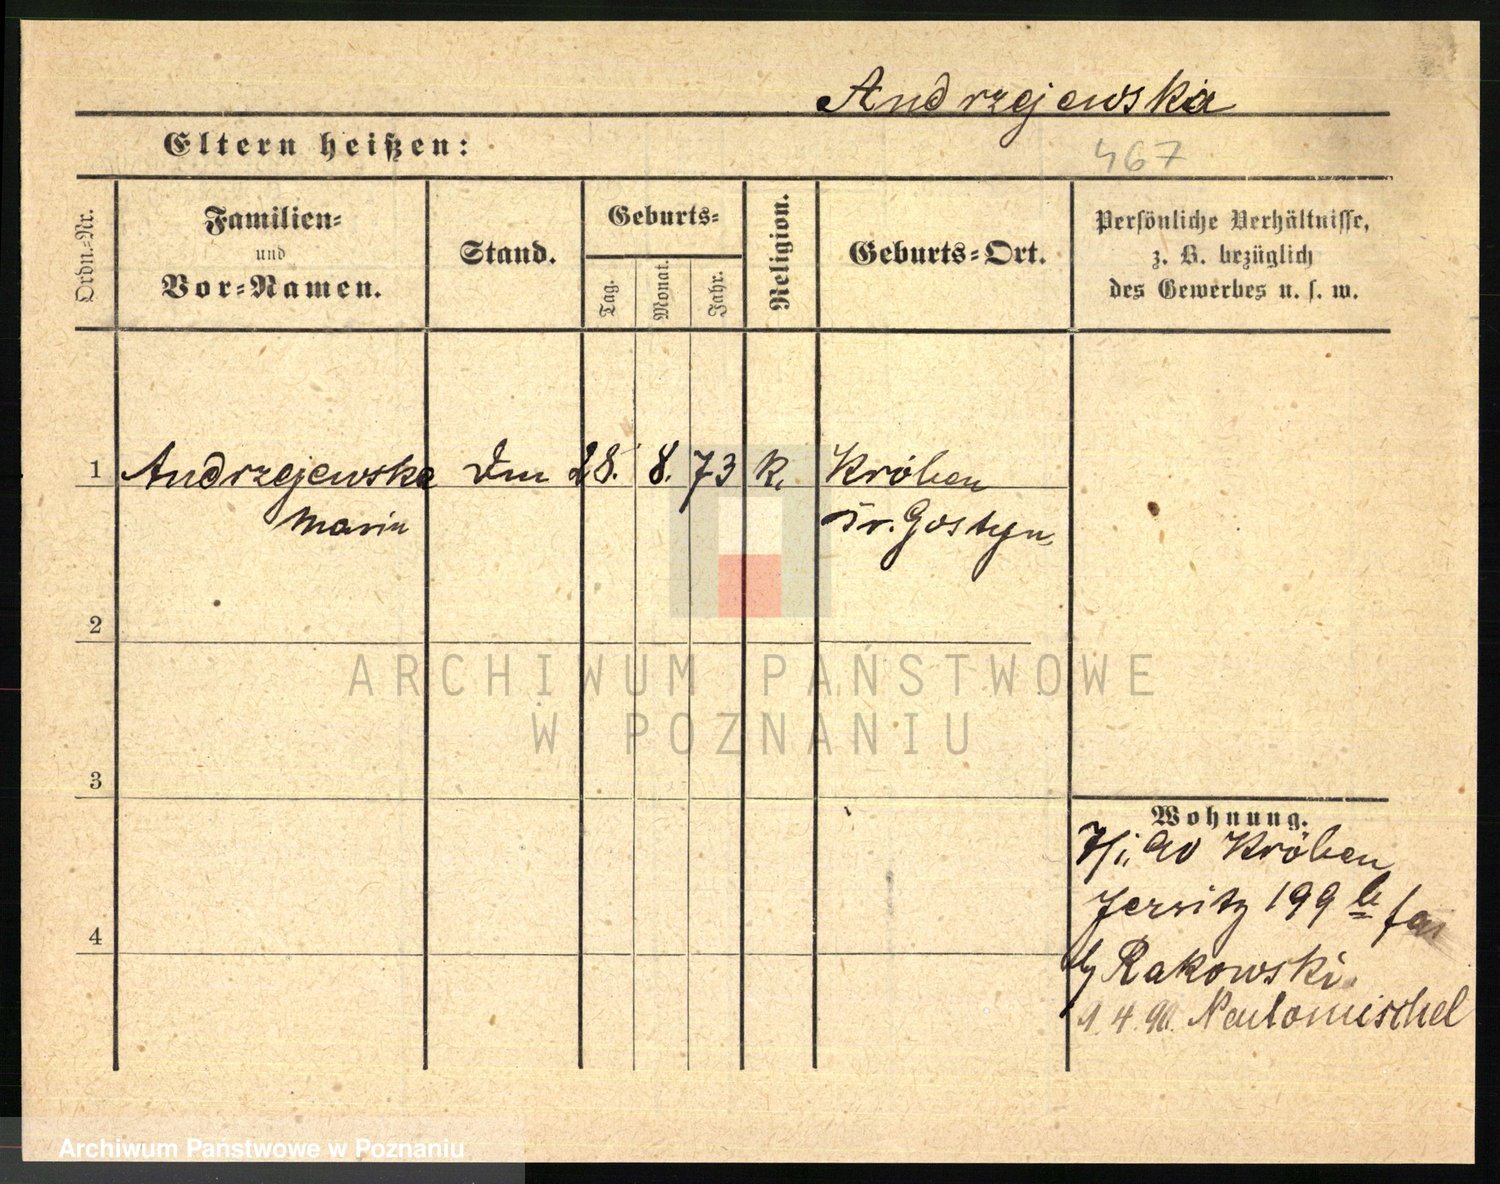 Andrzejewska
Eltern heißen:
467
Ordn.-Nr.
Familien-
und
Vor-Namen.
Stand.
Geburts-
Tag.
Monat.
Jahr.
Religion.
Geburts-Ort.
Persönliche Verhältnisse,
z. B. bezüglich
des Gewerbes u. s. w.
1 Andrzejewska 28. 8. 73 k. Kröben
Maria Kr. Gostyn
2
ARCHIWUM PAŃSTWOWE
W POZNANIU
3
Wohnung.
90 Kröben
Jersitz 199
4
Rakowski
1. 4. 90. Neutomischel
Archiwum Państwowe w Poznaniu